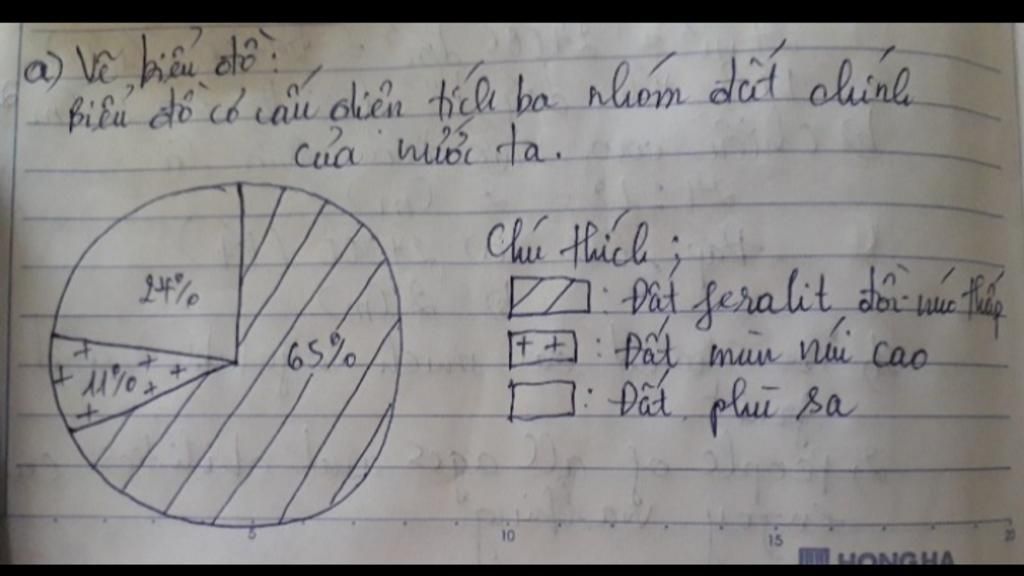 a) Vẽ biểu đồ:
Biểu đồ cơ cấu diện tích ba nhóm đất chính
của nước ta.
Chú thích:
24%
: Đất feralit đồi núi thấp
65%
+ + : Đất mùn núi cao
11%
: Đất phù sa
5 10 15 20
HONG HA